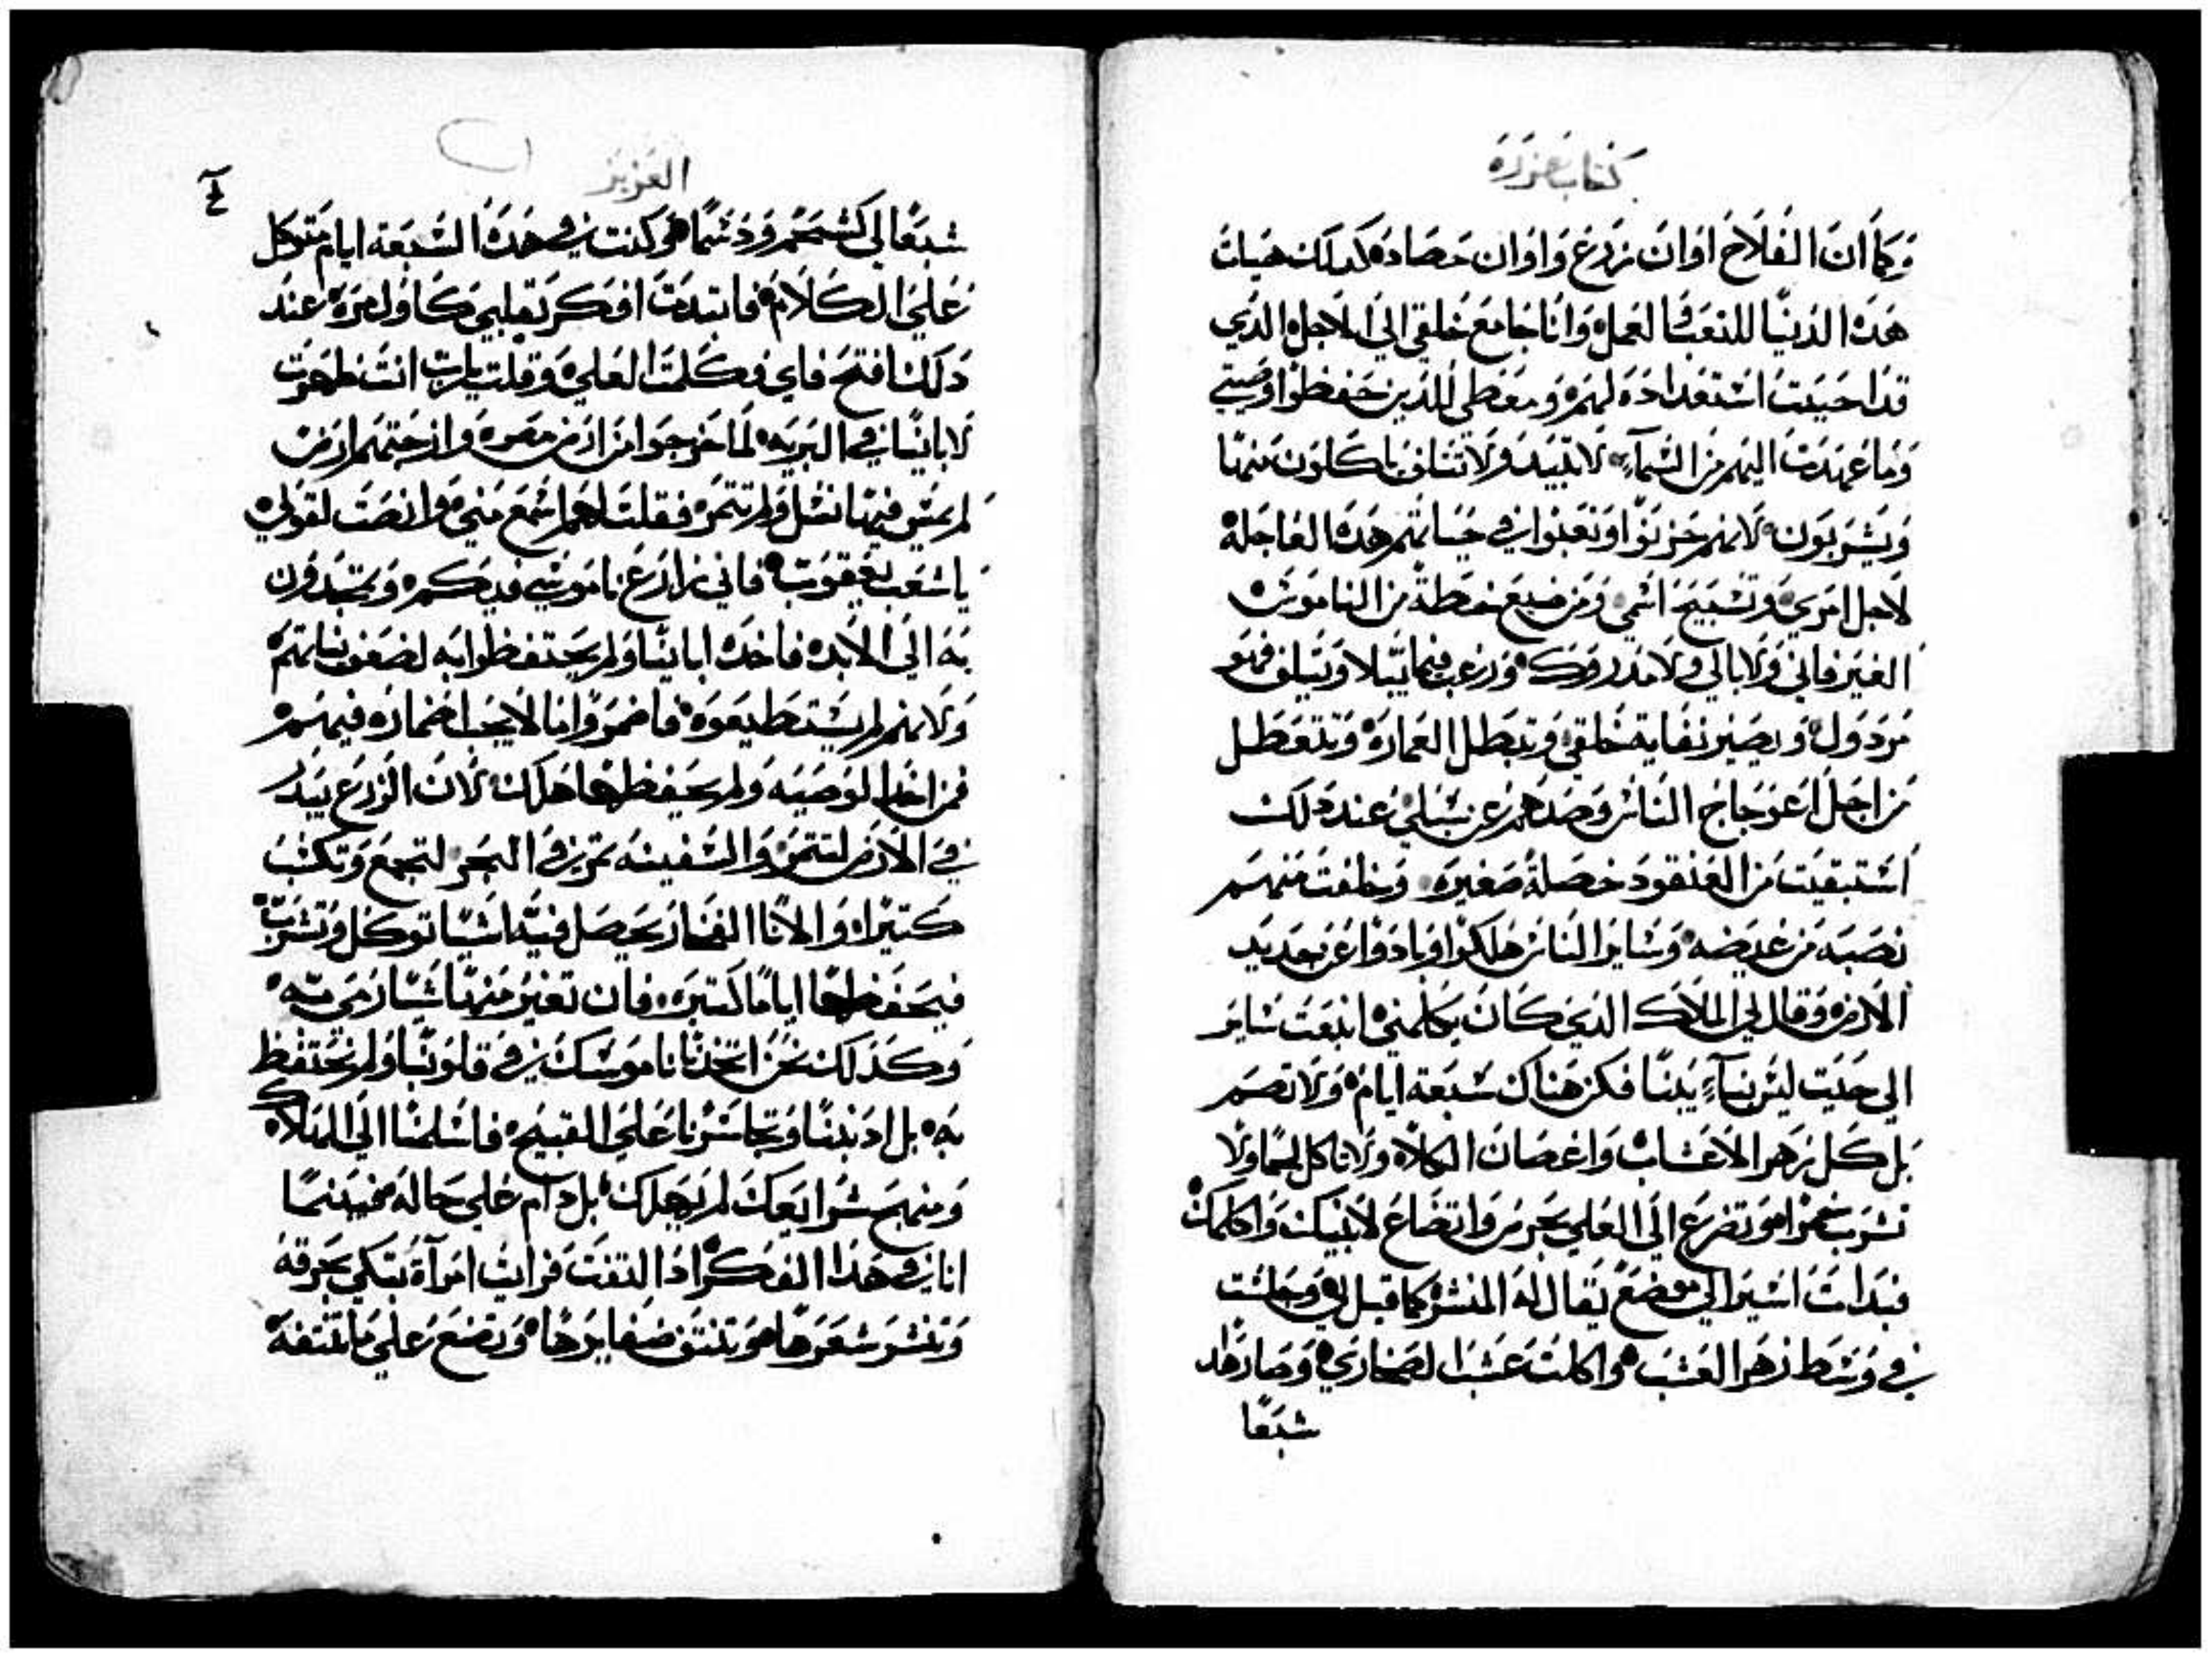 كتاب عزره
وَكما انَ الفلاح اوَانَ زرع وَاوَان حصاده كدلك هيات
هَده الدنيا للتعب والعمل وَانا جامع خلقي الي الاجل الدي
قد احببت استعداده لهم ومعطي للذين حفظوا وصيتي
وَما عهدت اليهم من السمآء لا تبيد ولا تتلف ياكلون منها
وَيشربون لانهم حزنوا وتعبوا في حياتهم هده العاجلة
لاجل امري وتسبيح اسمي ومن ضيع خطة من الناموس
الغير فاني ولا بالي ولا مدروك ورغب فيما يبلا ويتلف فهو
مردول ويصير نفاية خلقي وتبطل العمارة وتتعطل
من اجل اعوجاج الناس وصدهم عن سبلي عند دلك
استبقيت من العنقود خصلة صغيره وخلفت منهم
نصبه من غيضه وساير الناس هلكوا وبادوا عن جديد
الارض وقال لي الملاك الدي كان يكلمني انبعت ساير
الي حيت ليس بنآء يبنا فكن هناك سبعة ايام ولا تصم
بل كل زهر الاعشاب واغصان الكلاه ولا تاكل لحما ولا
تشرب خمرا وتضرع الي العلي بحرص واتضاع لابنيك واكلمك
فبدات اسير الي موضع يقال له المنشر كما قيل لي وجلست
في وسط زهر العشب واكلت عشب الصحاري وصار هدا
شبعًا
العزيز
٤
شبعًا لي كشحم ودسمًا وكنت في هده السبعة ايام متوكل
علي الكلام فابتدت افكر بقلبي كاول مره عند
دلك افتح فاي فكلمت العلي وقلت يارب انت ظهرت
لاباينا في البرية لما خرجوا من ارض مصر وارحتهم ارض
لم يمش فيها نسل ولم تتمر فقلت لهم اسمع مني وانصت لقولي
ياشعب يعقوب فاني زارع ناموسي فيكم وتمجدون
به الي الابد فاخده اباينا ولم يحتفظوا به لضعف نياتهم
ولانهم لم يستطيعوه فاضمروا ما لا يجب اضماره فيهم
فمن اخد الوصيه ولم يحفظها هلك لان الزرع يبدر
في الارض لتتمر والسفينه تمر في البحر لتجمع وتكسب
كتيرا والانا الفخار يحصل فيه اشيا توكل وتشرب
فيحفظها اياما كتيره فان تغير منها شيا رمي به
وكدلك نحن اتخدنا ناموسك في قلوبنا ولم نحتفظ
به بل ادنبنا وتجاسرنا علي القبيح فاسلمنا الي الهلاك
ومنهج شرايعك لم يهلك بل دام علي حاله فبينما
انا في هدا الفكر اد التفت فرايت امرآة تبكي بحرقه
وتنشر شعرها وتنتف ضفايرها وتضع علي ما تنتفه